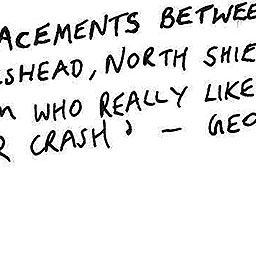 ACEMENTS BETWEE
SHEAD, NORTH SHIE
WHO REALLY LIKE
R CRASH' — GEO